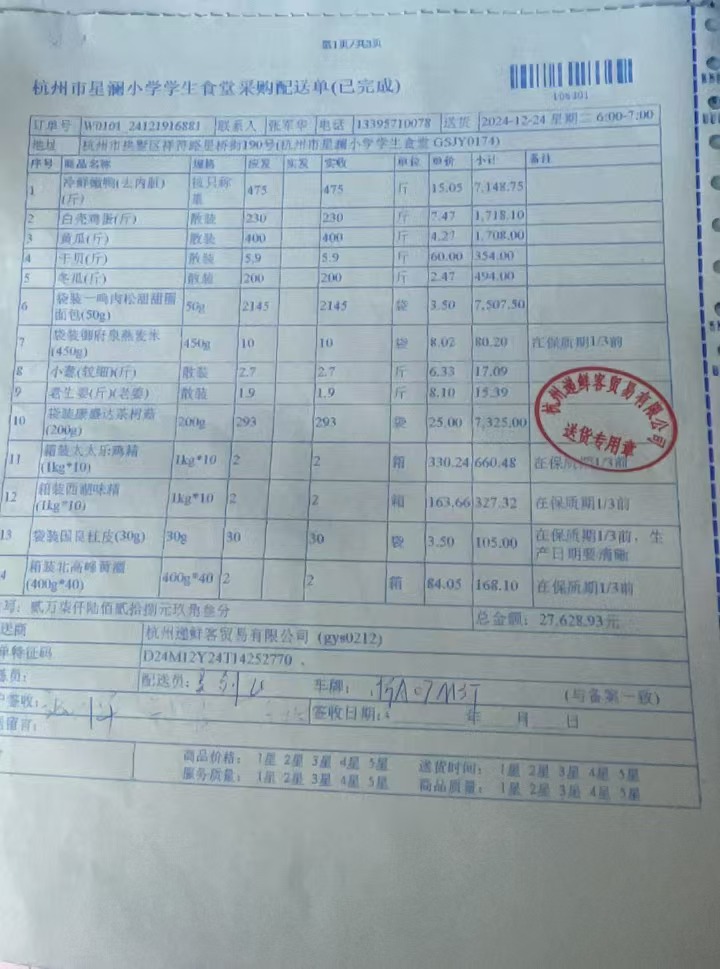 第1页/共3页
杭州市星澜小学学生食堂采购配送单(已完成)
订单号 W0101_24121916881 联系人 张军华 电话 13395710078 送货 2024-12-24 星期二 6:00-7:00
地址 杭州市拱墅区祥符路星桥街190号(杭州市星澜小学学生食堂 GSJY0174)
序号 商品名称 规格 应发 实发 实收 单位 单价 小计 备注
1 冷鲜嫩鸭(去内脏)(斤) 按只称重 475 475 斤 15.05 7,148.75
2 白壳鸡蛋(斤) 散装 230 230 斤 7.47 1,718.10
3 黄瓜(斤) 散装 400 400 斤 4.27 1,708.00
4 干贝(斤) 散装 5.9 5.9 斤 60.00 354.00
5 冬瓜(斤) 散装 200 200 斤 2.47 494.00
6 袋装一鸣肉松甜甜圈面包(50g) 50g 2145 2145 袋 3.50 7,507.50
7 袋装御府泉燕麦米(450g) 450g 10 10 袋 8.02 80.20 在保质期1/3前
8 小葱(较细)(斤) 散装 2.7 2.7 斤 6.33 17.09
9 老生姜(斤)(老姜) 散装 1.9 1.9 斤 8.10 15.39
10 袋装康盛达茶树菇(200g) 200g 293 293 袋 25.00 7,325.00
11 箱装太太乐鸡精(1kg*10) 1kg*10 2 2 箱 330.24 660.48 在保质期1/3前
12 箱装西湖味精(1kg*10) 1kg*10 2 2 箱 163.66 327.32 在保质期1/3前
13 袋装国良桂皮(30g) 30g 30 30 袋 3.50 105.00 在保质期1/3前，生产日期要清晰
4 箱装北高峰黄酒(400g*40) 400g*40 2 2 箱 84.05 168.10 在保质期1/3前
写：贰万柒仟陆佰贰拾捌元玖角叁分 总金额：27,628.93元
送商 杭州递鲜客贸易有限公司 (gys0212)
单特征码 D24M12Y24T14252770
员： 配送员： 车牌： (与备案一致)
签收： 签收日期： 年 月 日
留言：
商品价格： 1星 2星 3星 4星 5星 送货时间： 1星 2星 3星 4星 5星
服务质量： 1星 2星 3星 4星 5星 商品质量： 1星 2星 3星 4星 5星
杭州递鲜客贸易有限公司
送货专用章